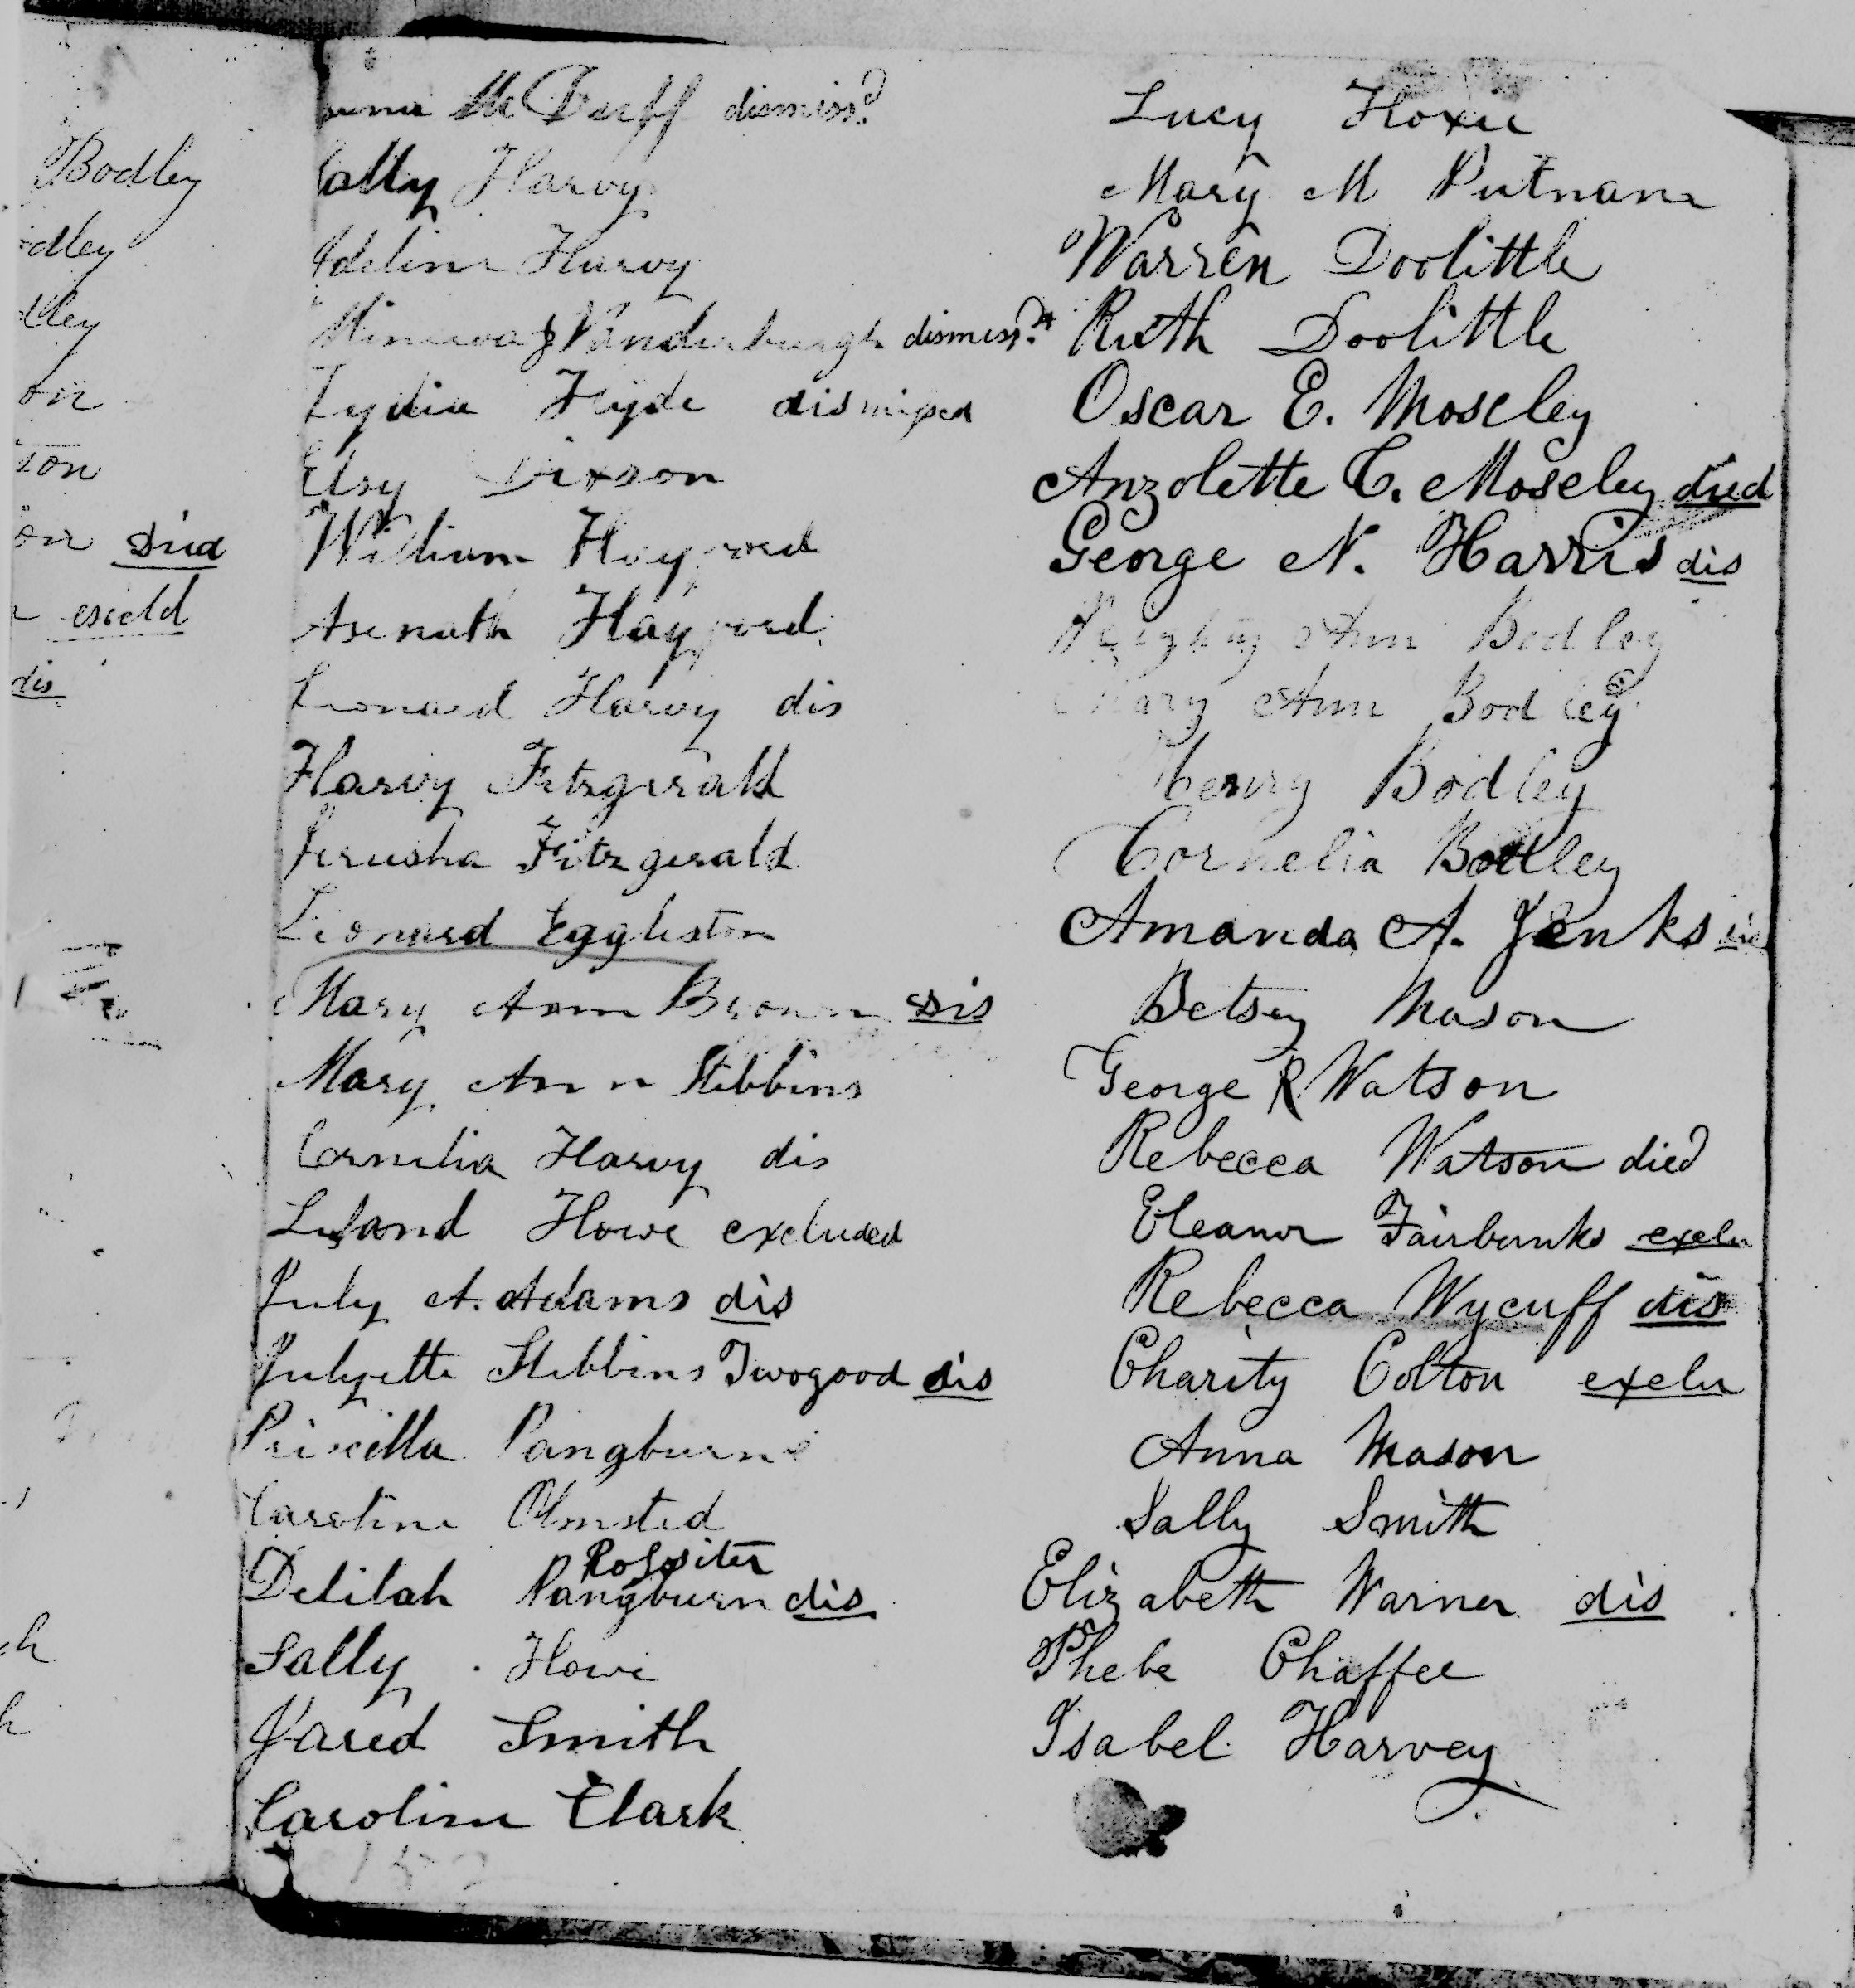 Bodley
dley
lley
on
ton
on Died
exceld
dis
McDuff dismissd
Sally Harvy
Adeline Harvy
Minerva J Vanderburgh dismissd
Lydia Hyde dismissed
Elsy Dixson
William Hayford
Asenath Hayford
Leonard Harvy dis
Harvy Fitzgerald
Jerusha Fitzgerald
Leonard Eggleston
Mary Ann Brown Dis
Mary Ann Stibbins
Cornelia Harvy dis
Leland Howe excluded
July A. Adams dis
Julyette Stebbins Twogood dis
Priscilla Pangburn
Caroline Olmsted
Rossiter
Delilah Pangburn dis
Sally Howe
Jared Smith
Caroline Clark
Lucy Hoxie
Mary M Putnam
Warren Doolittle
Ruth Doolittle
Oscar E. Moseley
Anzolette C. Moseley died
George N. Harris dis
Ann Bodley
Mary Ann Bodley
Henry Bodley
Cornelia Bodley
Amanda A. Jenks
Betsey Mason
George R Watson
Rebecca Watson died
Eleanor Fairbanks exclu
Rebecca Wycuff dis
Charity Colton exclu
Anna Mason
Sally Smith
Elizabeth Warner dis
Phebe Chaffee
Isabel Harvey